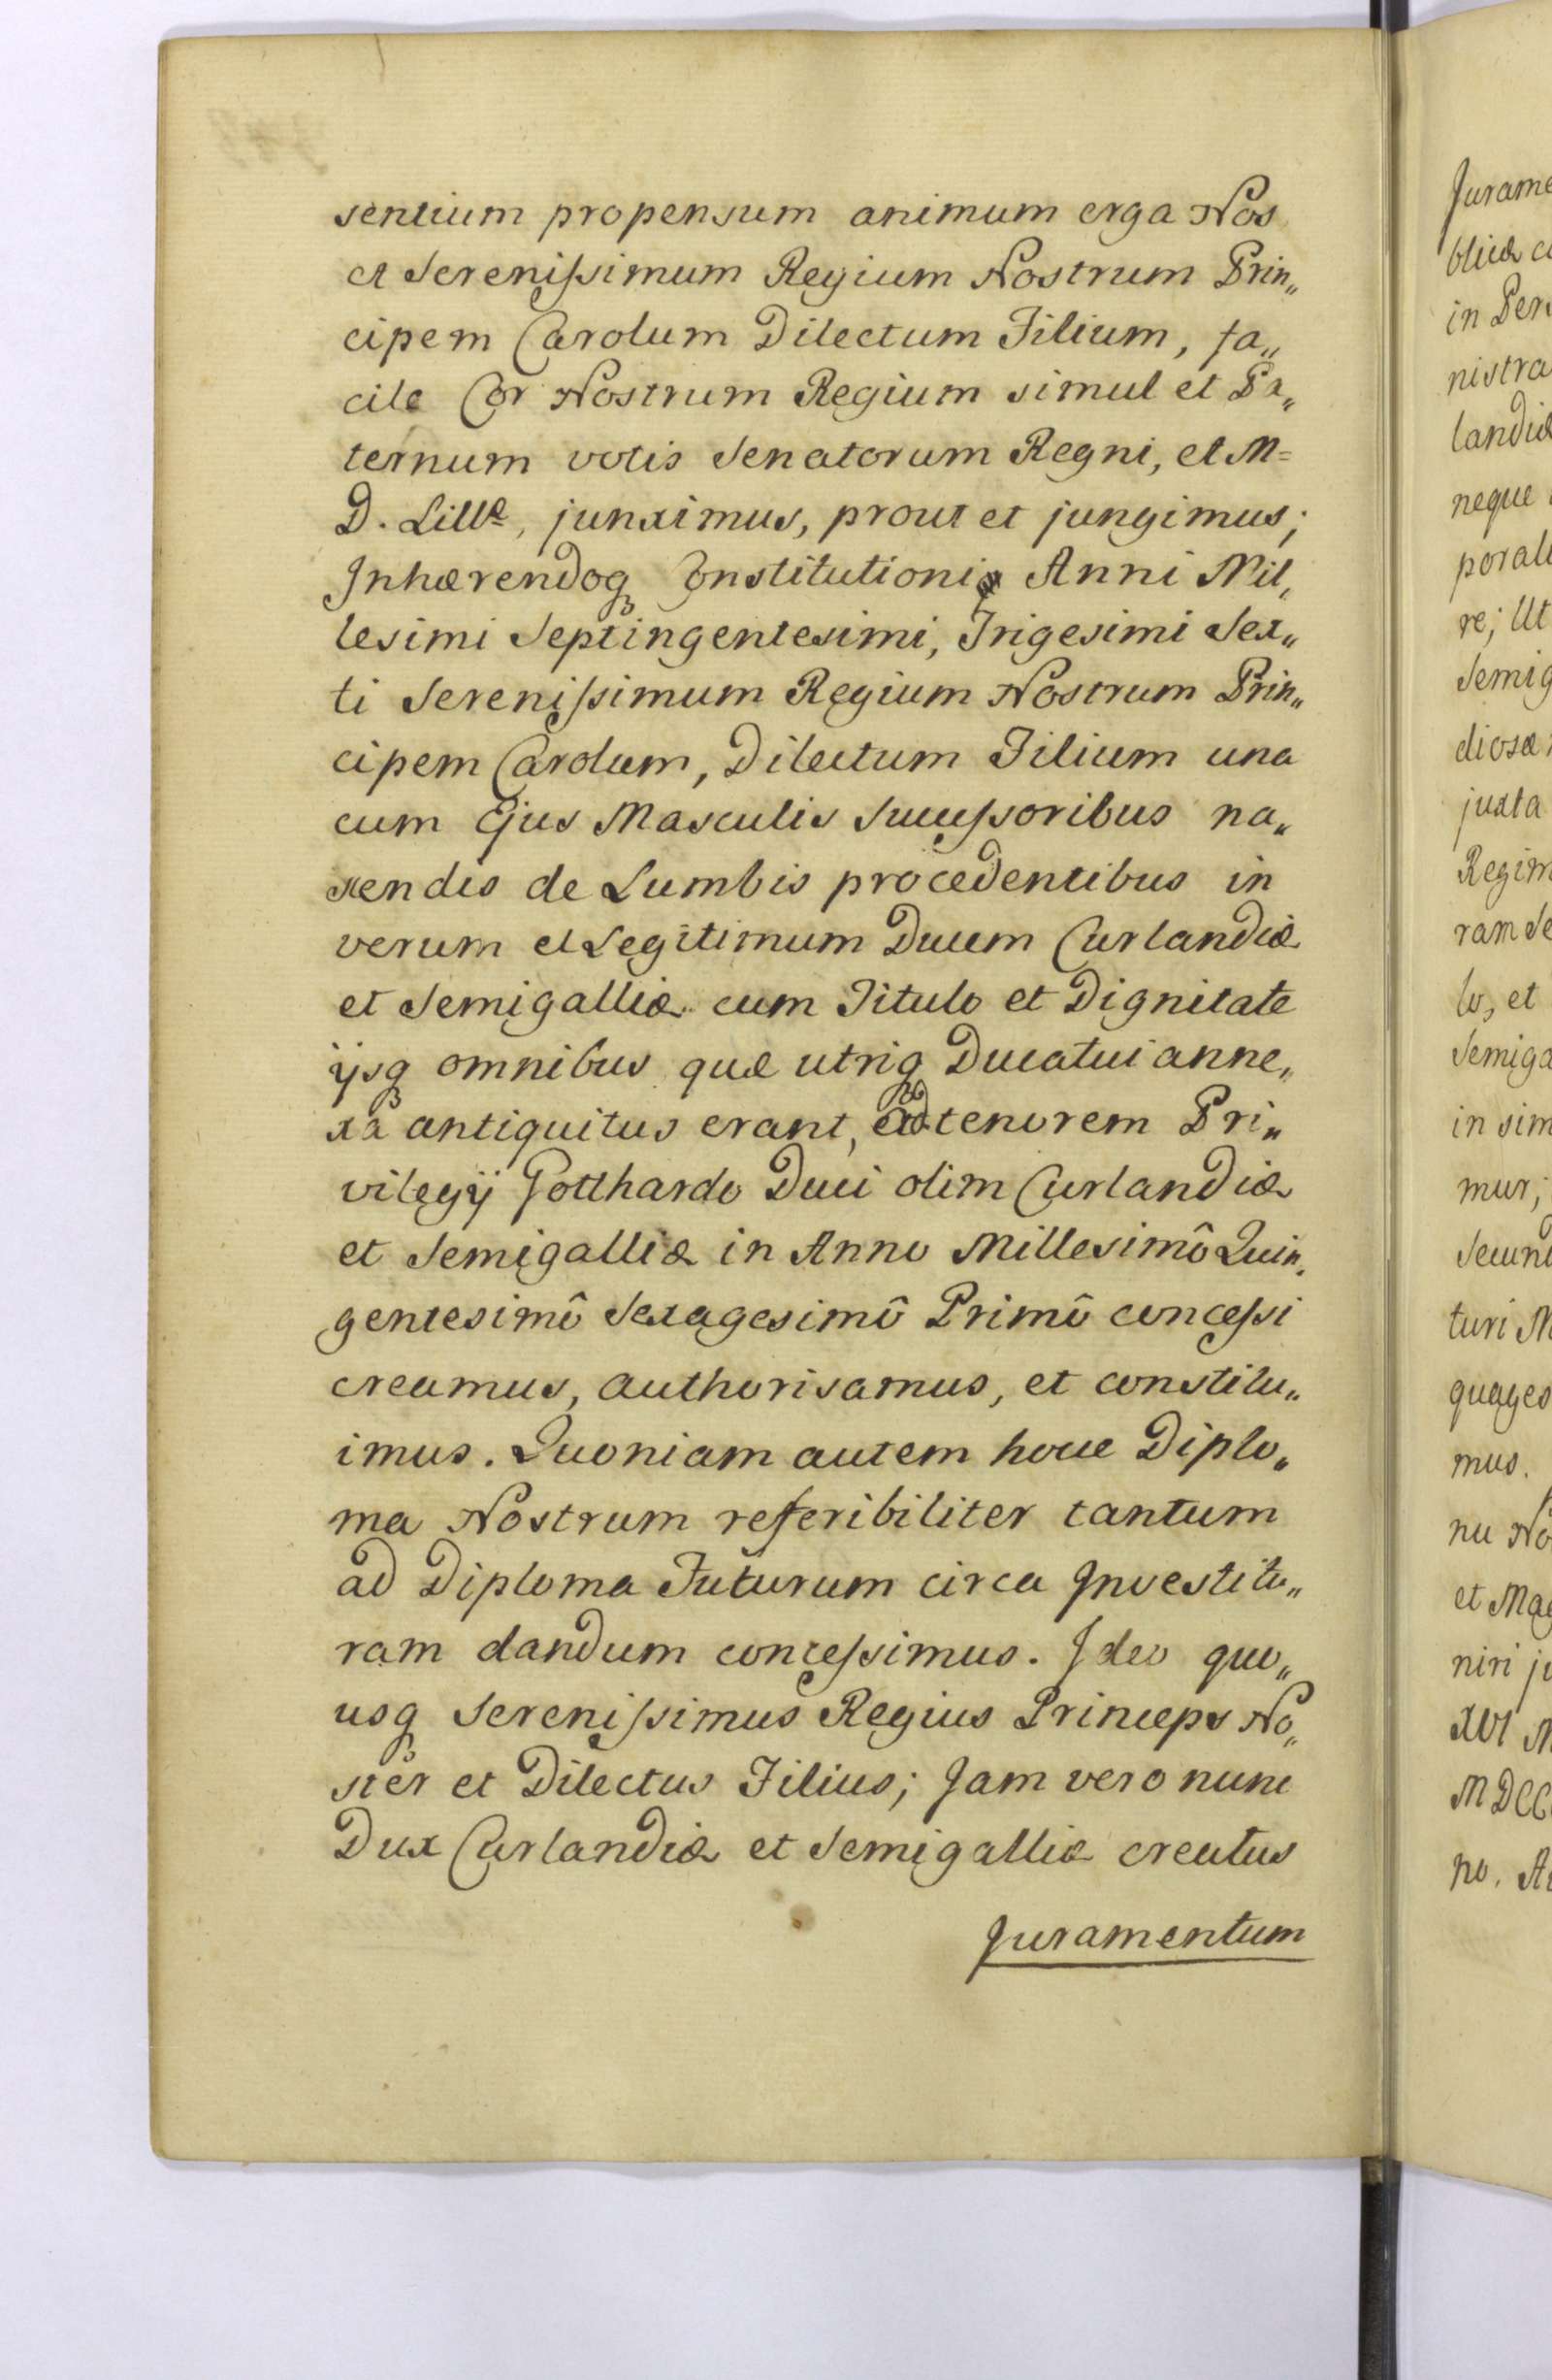 sentium propensum animum erga Nos
et Serenissimum Regium Nostrum Prin„
cipem Carolum Dilectum Filium, fa„
cile Cor Nostrum Regium simul et Pa„
ternum votis Senatorum Regni, et M=
D. Littæ, junximus, prout et jungimus;
Inhærendoq Constitutioni Anni Mil„
lesimi Septingentesimi, Trigesimi Sex„
ti Serenissimum Regium Nostrum Prin„
cipem Carolum, Dilectum Filium una
cum Ejus Masculis Successoribus na„
scendis de Lumbis procedentibus in
verum et Legitimum Ducem Curlandiæ
et Semigalliæ cum Titulo et Dignitate
ijsq omnibus quæ utriq Ducatui anne„
xa antiquitus erant, ad tenorem Pri„
vilegij Gotthardo Duci olim Curlandiæ
et Semigalliæ in Anno Millesimô Quin„
gentesimô Sexagesimô Primô concessi
creamus, authorisamus, et constitu„
imus. Quoniam autem hocce Diplo„
ma Nostrum referibiliter tantum
ad Diploma Futurum circa Investitu„
ram dandum concessimus. Ideo quo„
usq Serenissimus Regius Princeps No„
ster et Dilectus Filius; Jam vero nunc
Dux Curlandiæ et Semigalliæ creatus
Juramentum
Jurame
blicæ co
in Pers
nistra
landiæ
neque
porali
re; Ut
Semig
diosæ
juxta
Regim
ram Se
lo, et
Semiga
in sim
mur;
Secund
turi M
quages
mus.
nu No
et Mag
niri ju
XVI M
MDCC
no. An